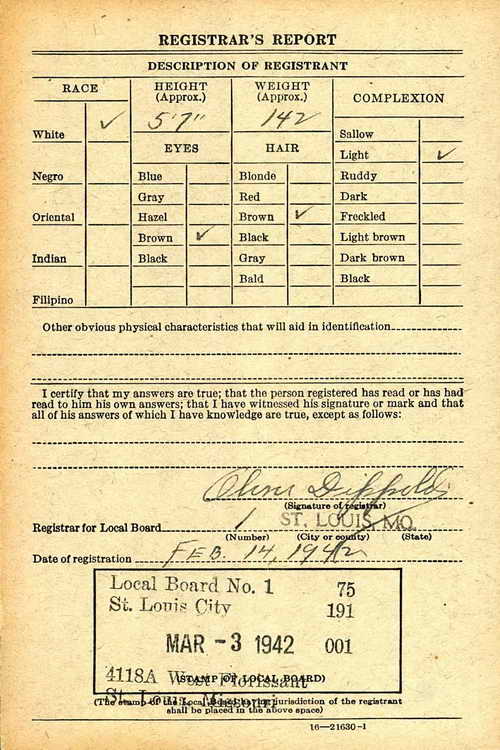 REGISTRAR'S REPORT
DESCRIPTION OF REGISTRANT
RACE
HEIGHT (Approx.)
WEIGHT (Approx.)
COMPLEXION
5'7"
142
White ✓
EYES
HAIR
Sallow
Light ✓
Negro
Blue
Blonde
Ruddy
Gray
Red
Dark
Oriental
Hazel
Brown ✓
Freckled
Brown ✓
Black
Light brown
Indian
Black
Gray
Dark brown
Bald
Black
Filipino
Other obvious physical characteristics that will aid in identification
I certify that my answers are true; that the person registered has read or has had
read to him his own answers; that I have witnessed his signature or mark and that
all of his answers of which I have knowledge are true, except as follows:
(Signature of registrar)
Registrar for Local Board 1 ST. LOUIS, MO.
(Number) (City or county) (State)
Date of registration FEB. 14, 1942
Local Board No. 1 75
St. Louis City 191
MAR -3 1942 001
4118A West Florissant
(STAMP OF LOCAL BOARD)
St. Louis, Missouri
(The stamp of the Local Board having jurisdiction of the registrant
shall be placed in the above space)
16—21630-1